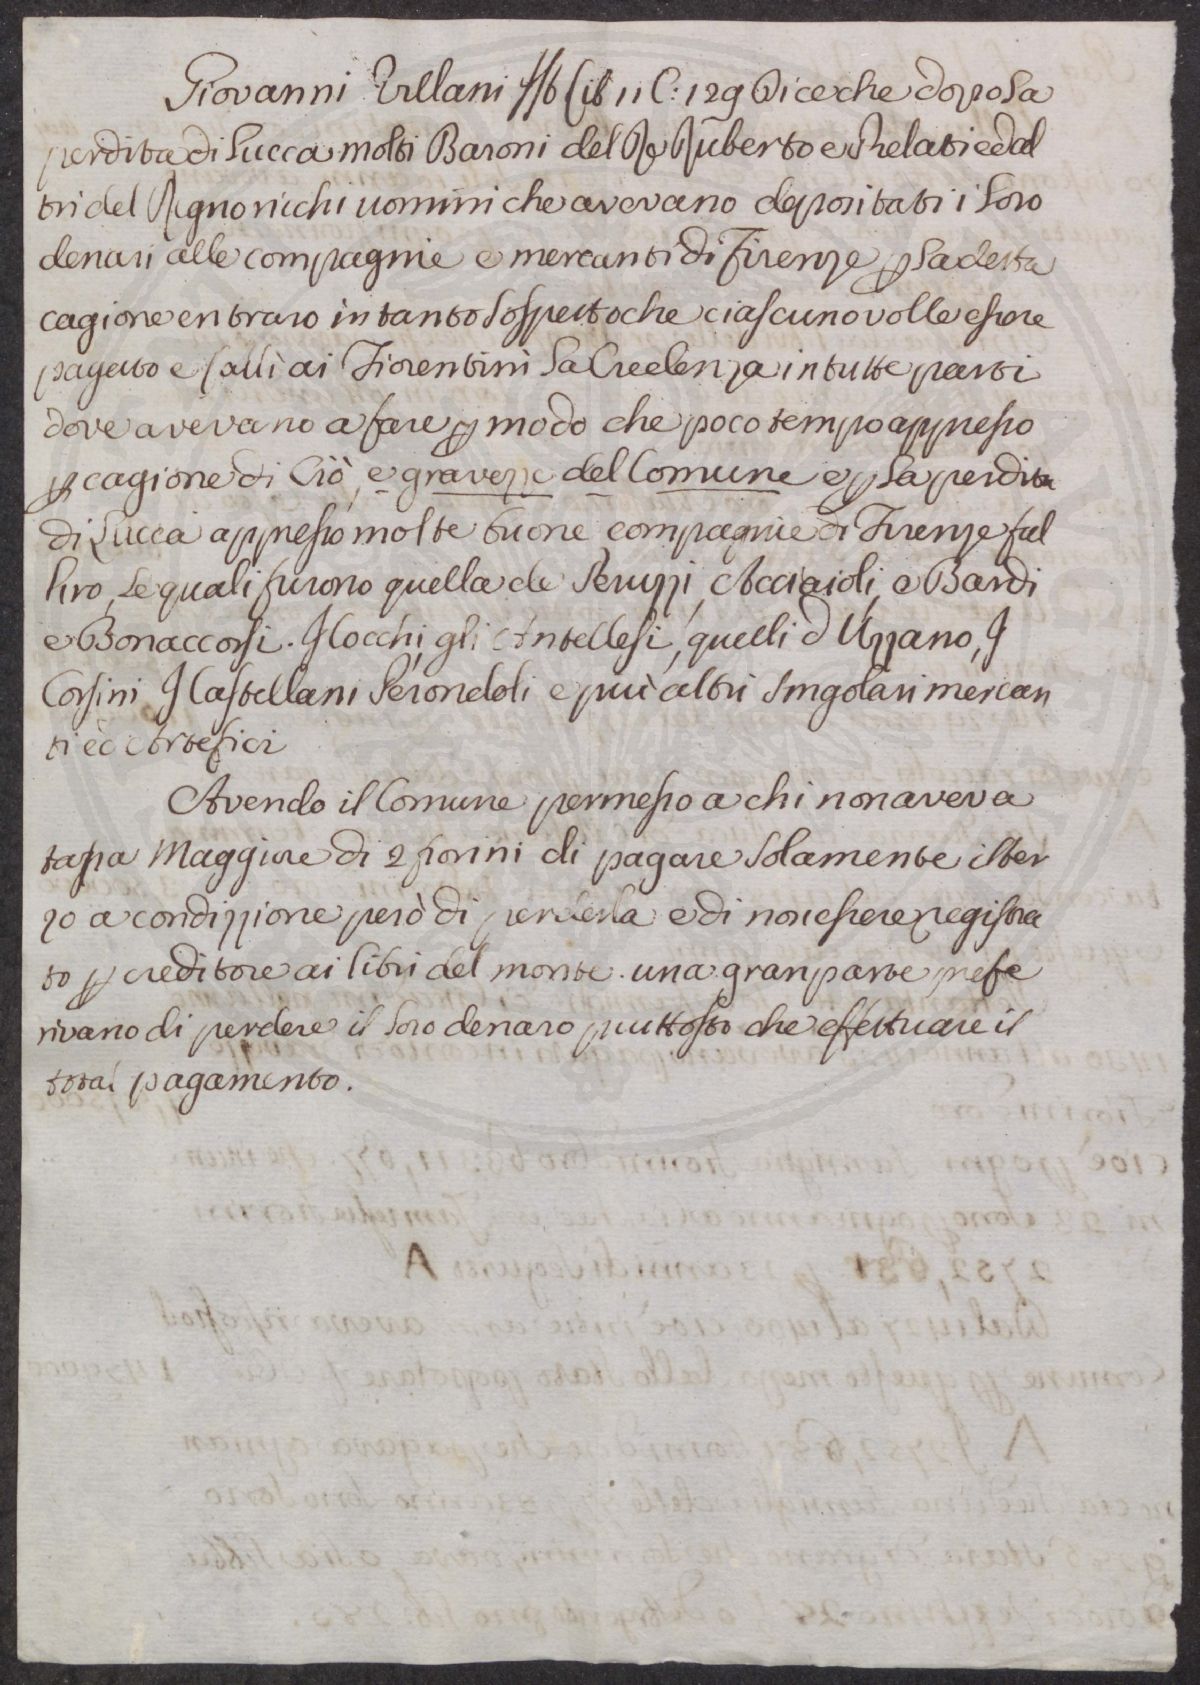 Giovanni Villani lib 11 C: 129 Dice che dopo la
perdita di Lucca molti Baroni del Re Ruberto e Prelati ed al
tri del Regno ricchi uomini che avevano depositati i loro
denari alle compagnie e mercanti di Firenze p la detta
cagione entraro in tanto sospetto che ciascuno volle essere
pagato e fallì ai Fiorentini la Credenza in tutte parti
dove avevano a fare p modo che poco tempo appresso
p cagione di Ciò, e gravezze del Comune e p la perdita
di Lucca appresso molte buone compagnie di Firenze fal
liro, le quali furono quella de Peruzzi, Acciaioli, e Bardi
e Bonaccorsi. I Cocchi, gli Antellesi, quelli d Uzzano, I
Corsini I Castellani Perondoli e più altri singolari mercan
ti ed Artefici
Avendo il Comune permesso a chi non aveva
tassa Maggiore di 2 fiorini di pagare solamente il ter
zo a condizzione però di perderla e di non essere registra
to p creditore ai libri del monte. una gran parte prefe
rivano di perdere il loro denaro piuttosto che effettuare il
total pagamento.